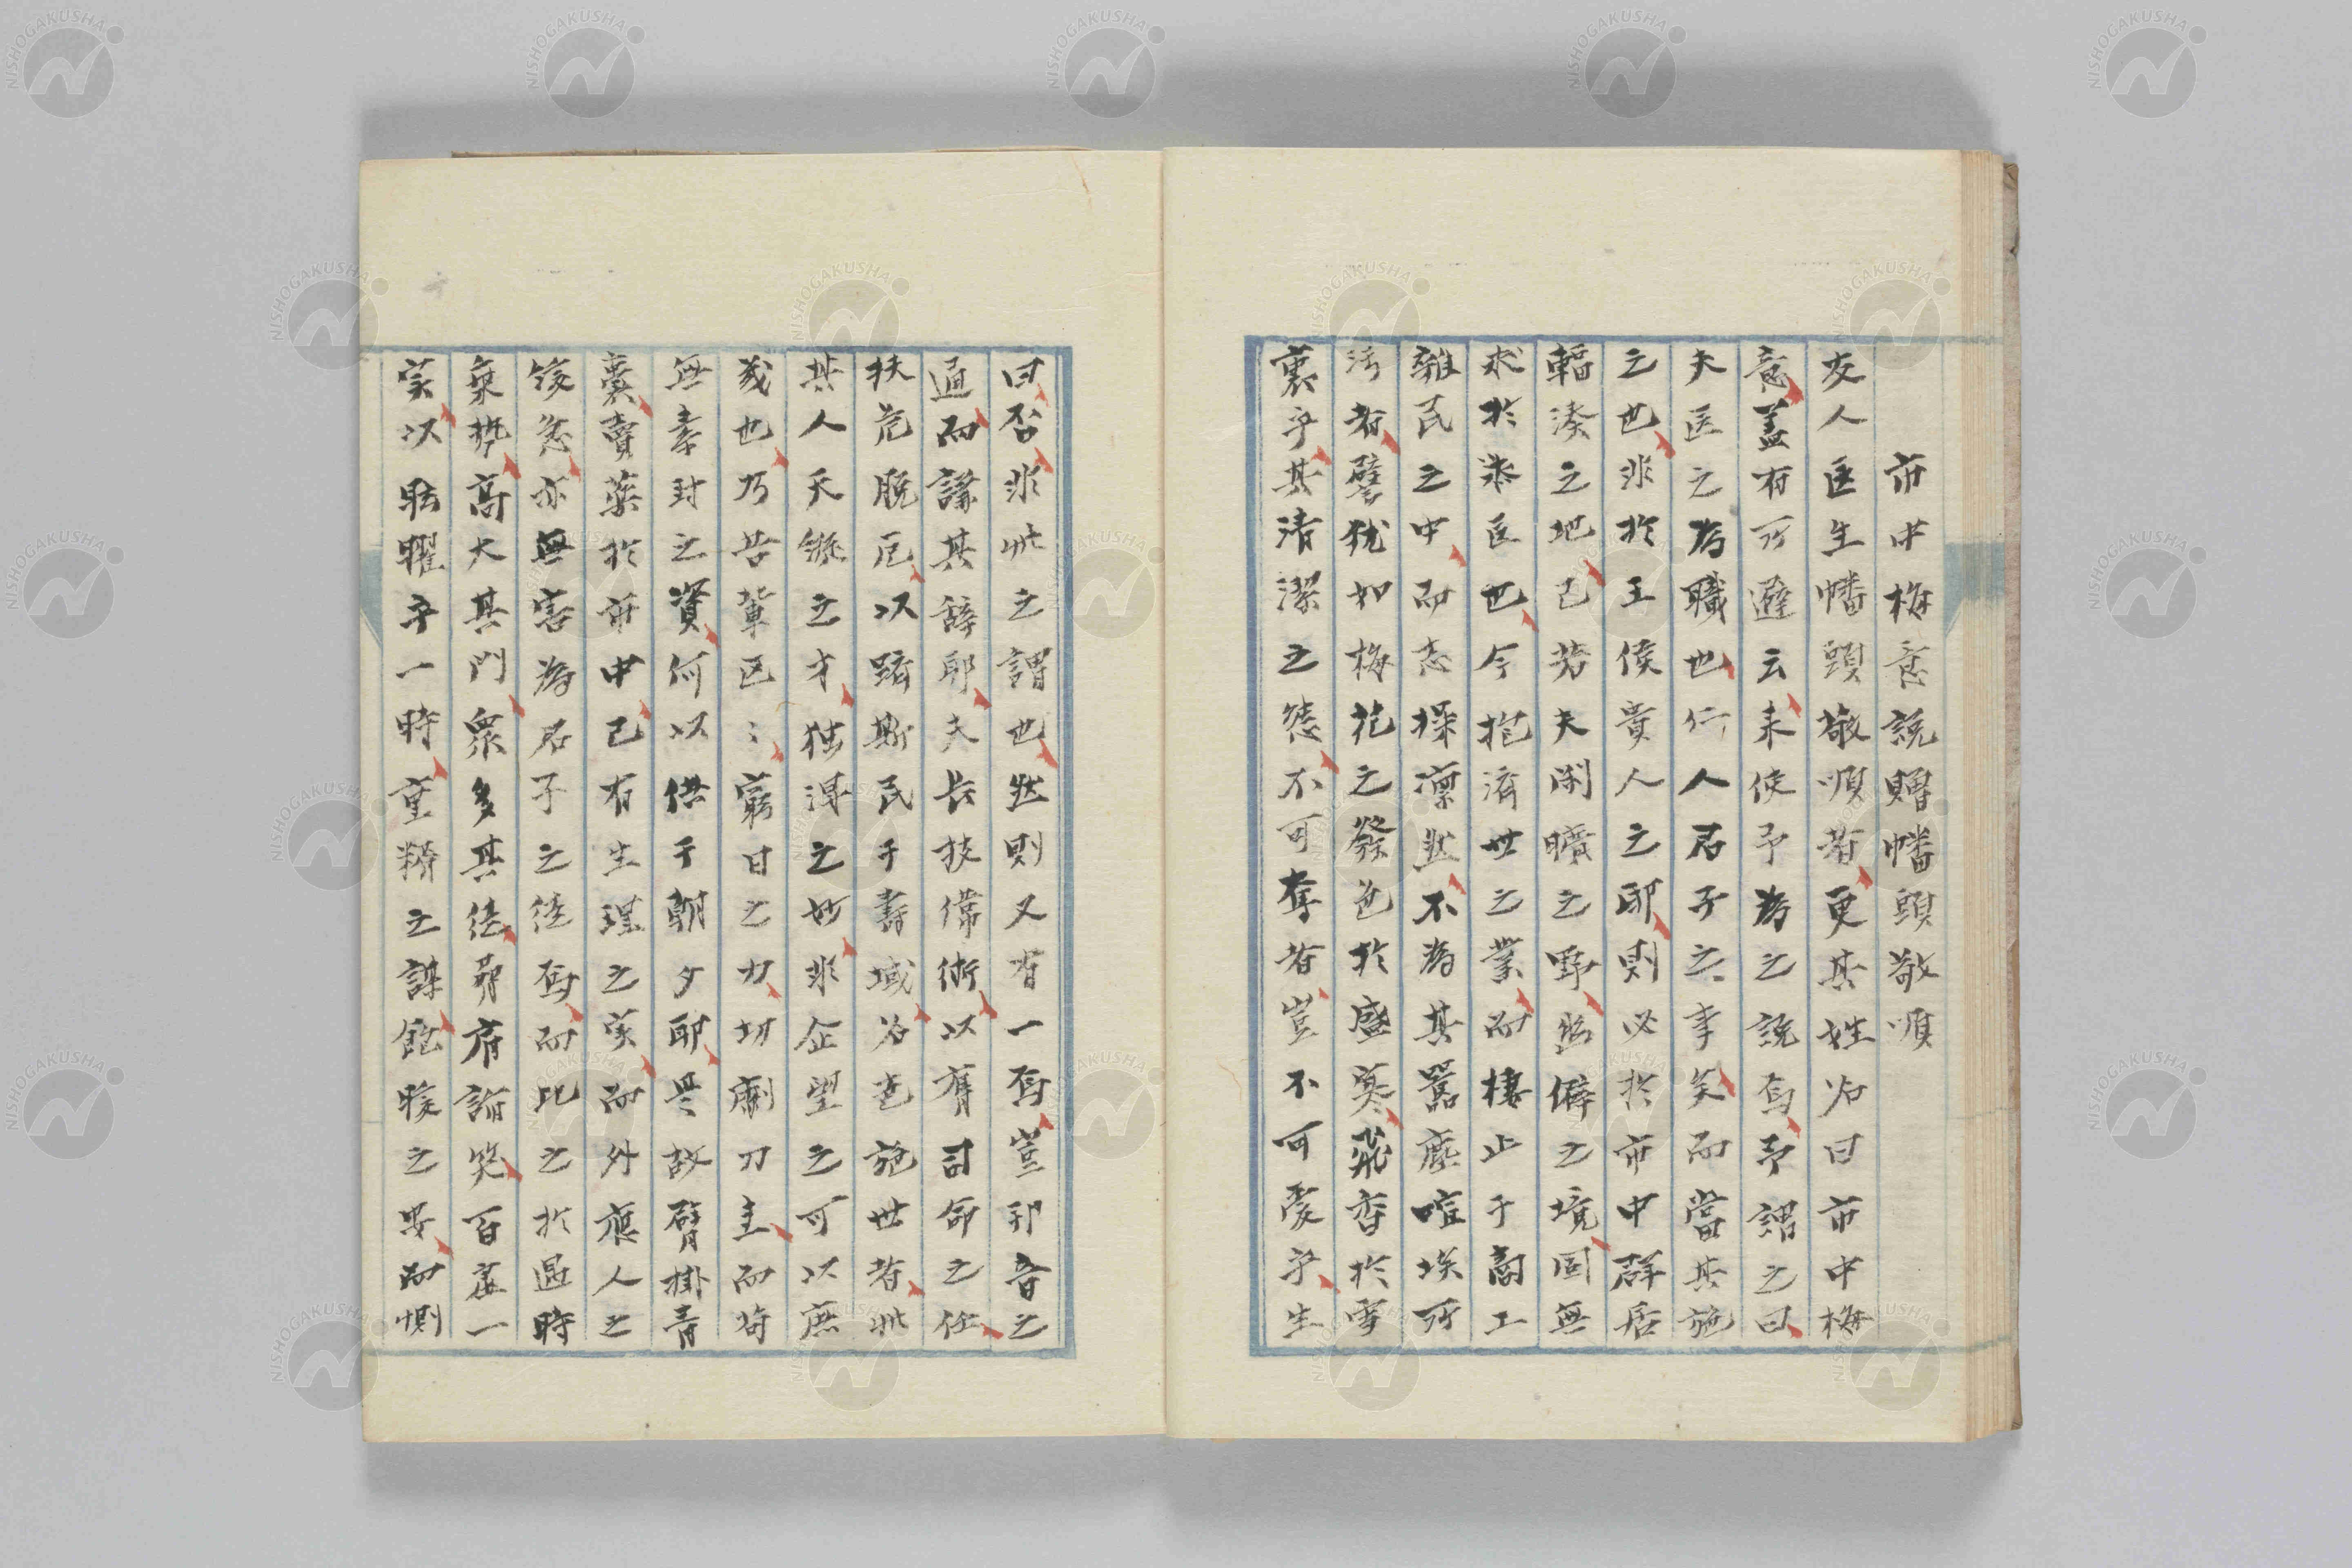 市中梅意説贈幡頭敬順
友人医生幡頭敬順者更其姓名曰市中梅
意蓋有所避云来使予為之説焉予謂之曰
夫医之為職也仁人君子之事矣而當其施
之也非於王侯貴人之邸則必於市中群居
輻湊之地已若夫閑曠之野幽僻之境固無
求於楽医也今抱済世之業而棲止于商工
雜民之中而志操凛然不為其囂塵喧埃所
汚者譬猶如梅花之發色於盛寒飛香於雪
裏乎其清潔之徳不可奪者豈不可愛乎生
曰否非此之謂也然則又有一焉豈邪音之
通而謙其辞耶夫長技偉術以膺司命之任
扶危脱厄以躋斯民于壽域名老施世者此
其人天縦之才独得之妙非企望之可以庶
幾也乃吾輩区〻窮日之力切劘刀圭而苟
無素封之資何以供于朝夕耶是故臂掛青
嚢賣藥於市中已有生理之実而外應人之
緩急亦無害為君子之徒焉而比之於過時
乗勢高大其門衆多其徒脅肩諂笑百虚一
実以眩曜乎一時重糈之謀飽暖之畢而惻